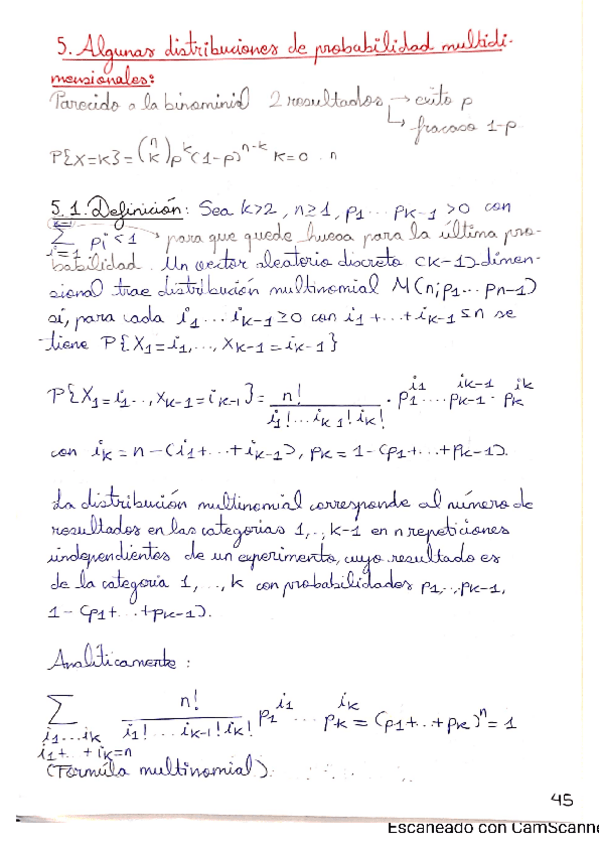 5. Algunas distribuciones de probabilidad multidi-
mensionales:
Parecido a la binominial 2 resultados → éxito p
↳ fracaso 1-p
P{X=K} = (n k) p^k (1-p)^{n-k} K=0..n
5.1. Definición: Sea k>2, n≥1, p1... pK-1 >0 con
∑_{i=1}^{k-1} pi < 1 → para que quede hueco para la última pro-
babilidad. Un vector aleatorio discreto (K-1)-dimen-
sional trae distribución multinomial M(n;p1...pn-1)
si, para cada i1...iK-1≥0 con i1+...+iK-1≤n se
tiene P{X1=i1,..., XK-1=iK-1}
P{X1=i1..,XK-1=iK-1} = n! / (i1!...iK-1! iK!) · p1^{i1}....pK-1^{iK-1}·pK^{iK}
con iK = n-(i1+..+iK-1), pK = 1-(p1+..+pK-1).
La distribución multinomial corresponde al número de
resultados en las categorias 1,.,K-1 en n repeticiones
independientes de un experimento, cuyo resultado es
de la categoria 1, .., k con probabilidades p1,..,pK-1,
1-(p1+..+pK-1).
Analíticamente:
∑_{i1...iK i1+..+iK=n} n! / (i1!...iK-1! iK!) p1^{i1} ... pK^{iK} = (p1+..+pK)^n = 1
(Formúla multinomial).
45
Escaneado con CamScanne